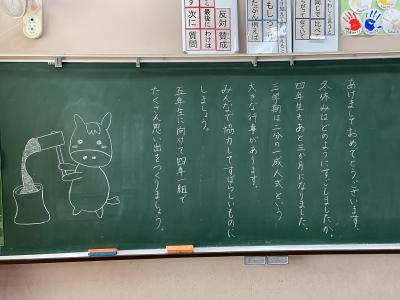 あけましておめでとうございます。
冬休みはどのようにすごしましたか。
四年生もあと三か月になりました。
三学期は二分の一成人式という
大きな行事があります。
みんなで協力してすばらしいものに
しましょう。
五年生に向けて四年一組で
たくさん思い出をつくりましょう。
賛成
反対
わけは
最後に
から
質問
次に